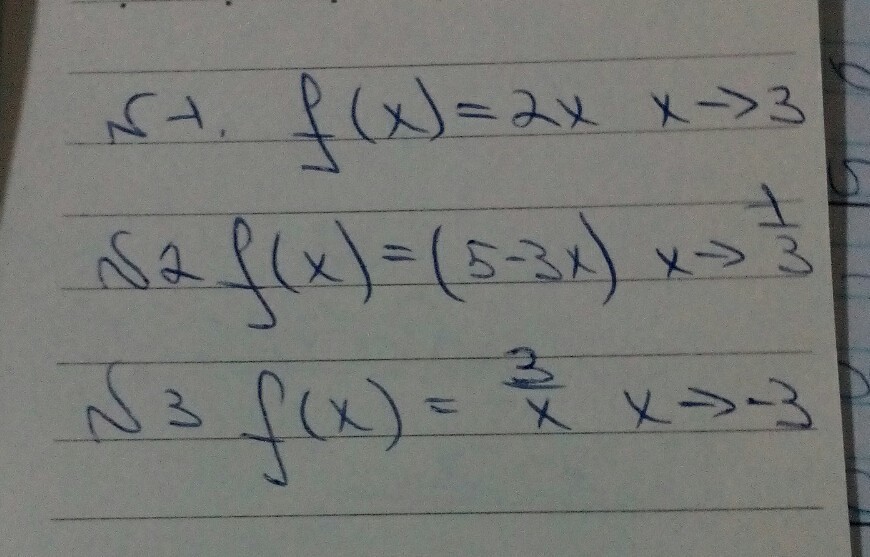 №1. f(x)=2x x→3
№2 f(x)=(5-3x) x→1/3
№3 f(x)=3/x x→-3